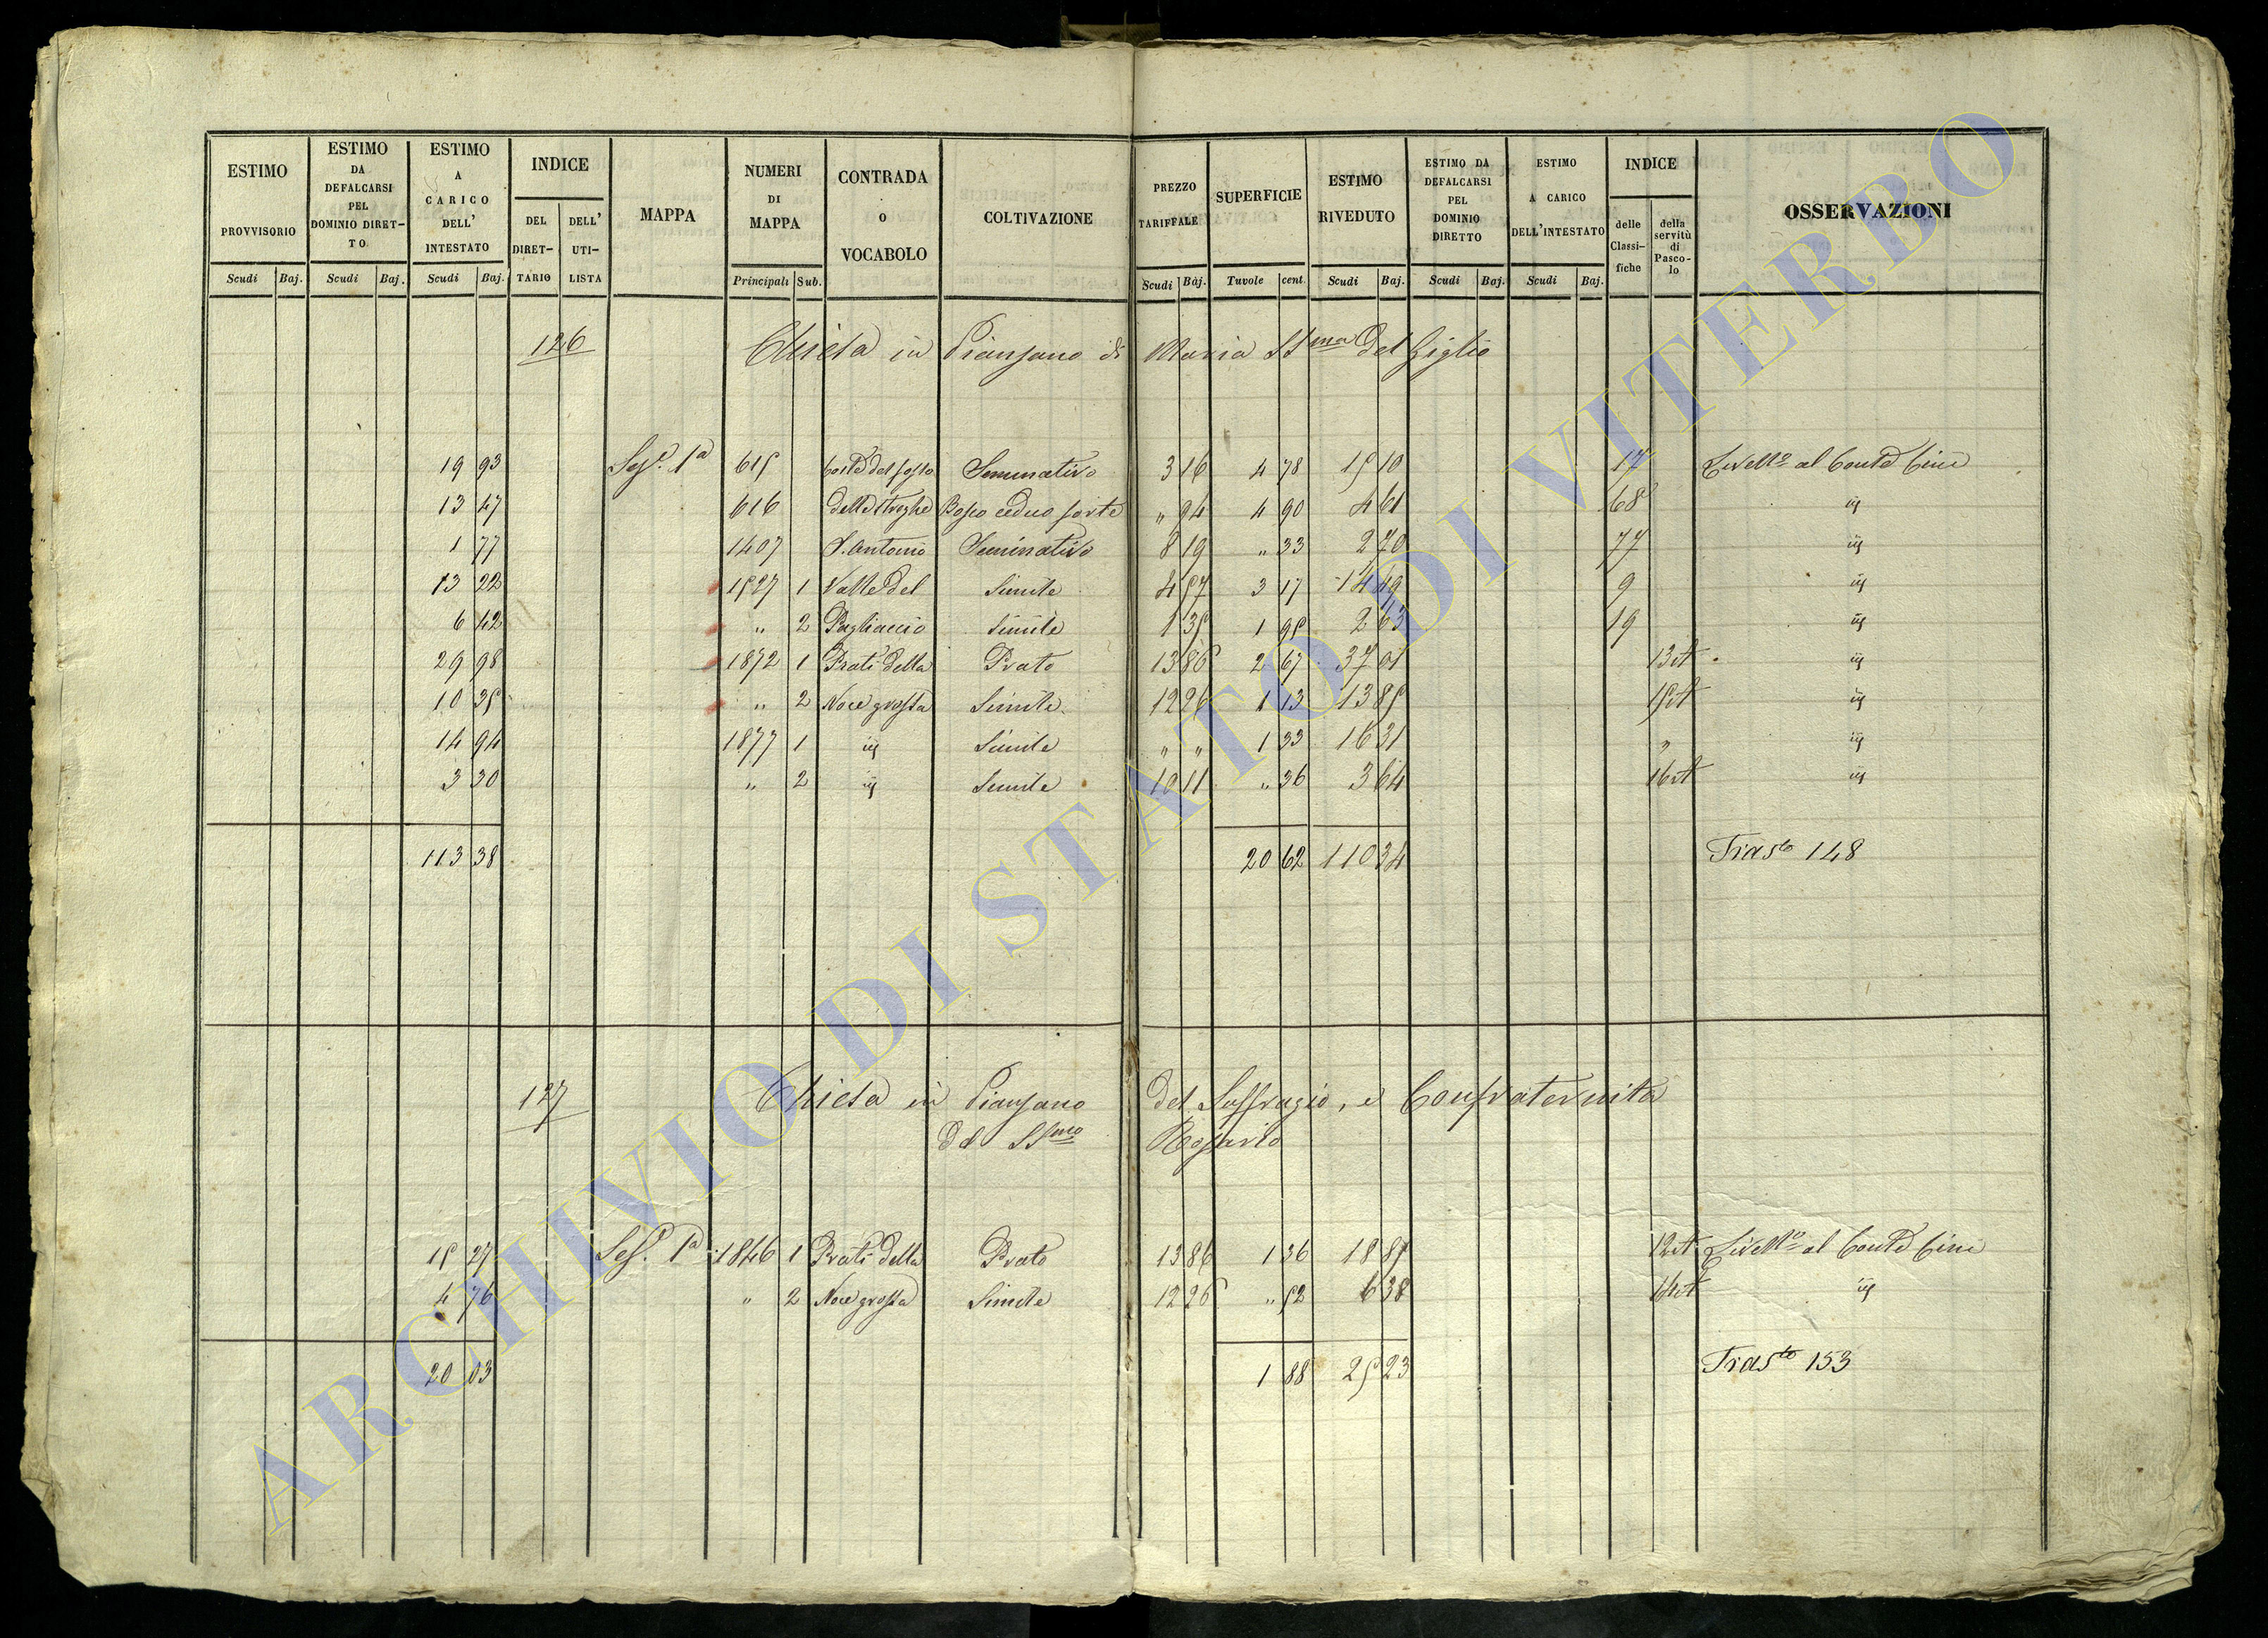 ESTIMO PROVVISORIO
ESTIMO DA DEFALCARSI PEL DOMINIO DIRET-TO
ESTIMO A CARICO DELL' INTESTATO
INDICE
DEL DIRET-TARIO
DELL' UTI-LISTA
MAPPA
NUMERI DI MAPPA
CONTRADA o VOCABOLO
COLTIVAZIONE
PREZZO TARIFFALE
SUPERFICIE
ESTIMO RIVEDUTO
ESTIMO DA DEFALCARSI PEL DOMINIO DIRETTO
ESTIMO A CARICO DELL'INTESTATO
INDICE
delle Classi-fiche
della servitù di Pasco-lo
OSSERVAZIONI
Scudi Baj. Scudi Baj. Scudi Baj. Principali Sub. Scudi Baj. Tavole cent. Scudi Baj. Scudi Baj. Scudi Baj.
126 Chiesa in Pianzano di Maria SSma del Giglio
19 93 Sez. 1a 615 Coste del fosso Seminativo 3 16 4 78 15 10 17 Livello al Conte Cini
13 47 616 delle Streghe Bosco ceduo forte " 94 4 90 4 61 68 iij
1 77 1407 S. Antonio Seminativo 8 19 " 33 2 70 77 iij
13 22 1527 1 Valle del Simile 4 57 3 17 14 49 9 iij
6 42 " 2 Pagliaccio Simile 1 35 1 95 2 63 19 iij
29 98 1872 1 Prati della Prato 13 86 2 67 37 01 13 iij
10 35 " 2 Noce grossa Simile 12 26 1 13 13 85 15 iij
14 94 1877 1 iij Simile " " 1 33 16 31 " iij
3 30 " 2 iij Simile 10 11 " 36 3 64 16 iij
113 38 20 62 110 34 Trasto 148
127 Chiesa in Pianzano del Suffragio, e Confraternita
del SSmo Rosario
15 27 Sez. 1a 1846 1 Prati della Prato 13 86 1 36 18 85 12 Livello al Conte Cini
4 76 " 2 Noce grossa Simile 12 26 " 52 6 38 14 iij
20 03 1 88 25 23 Trasto 153
ARCHIVIO DI STATO DI VITERBO